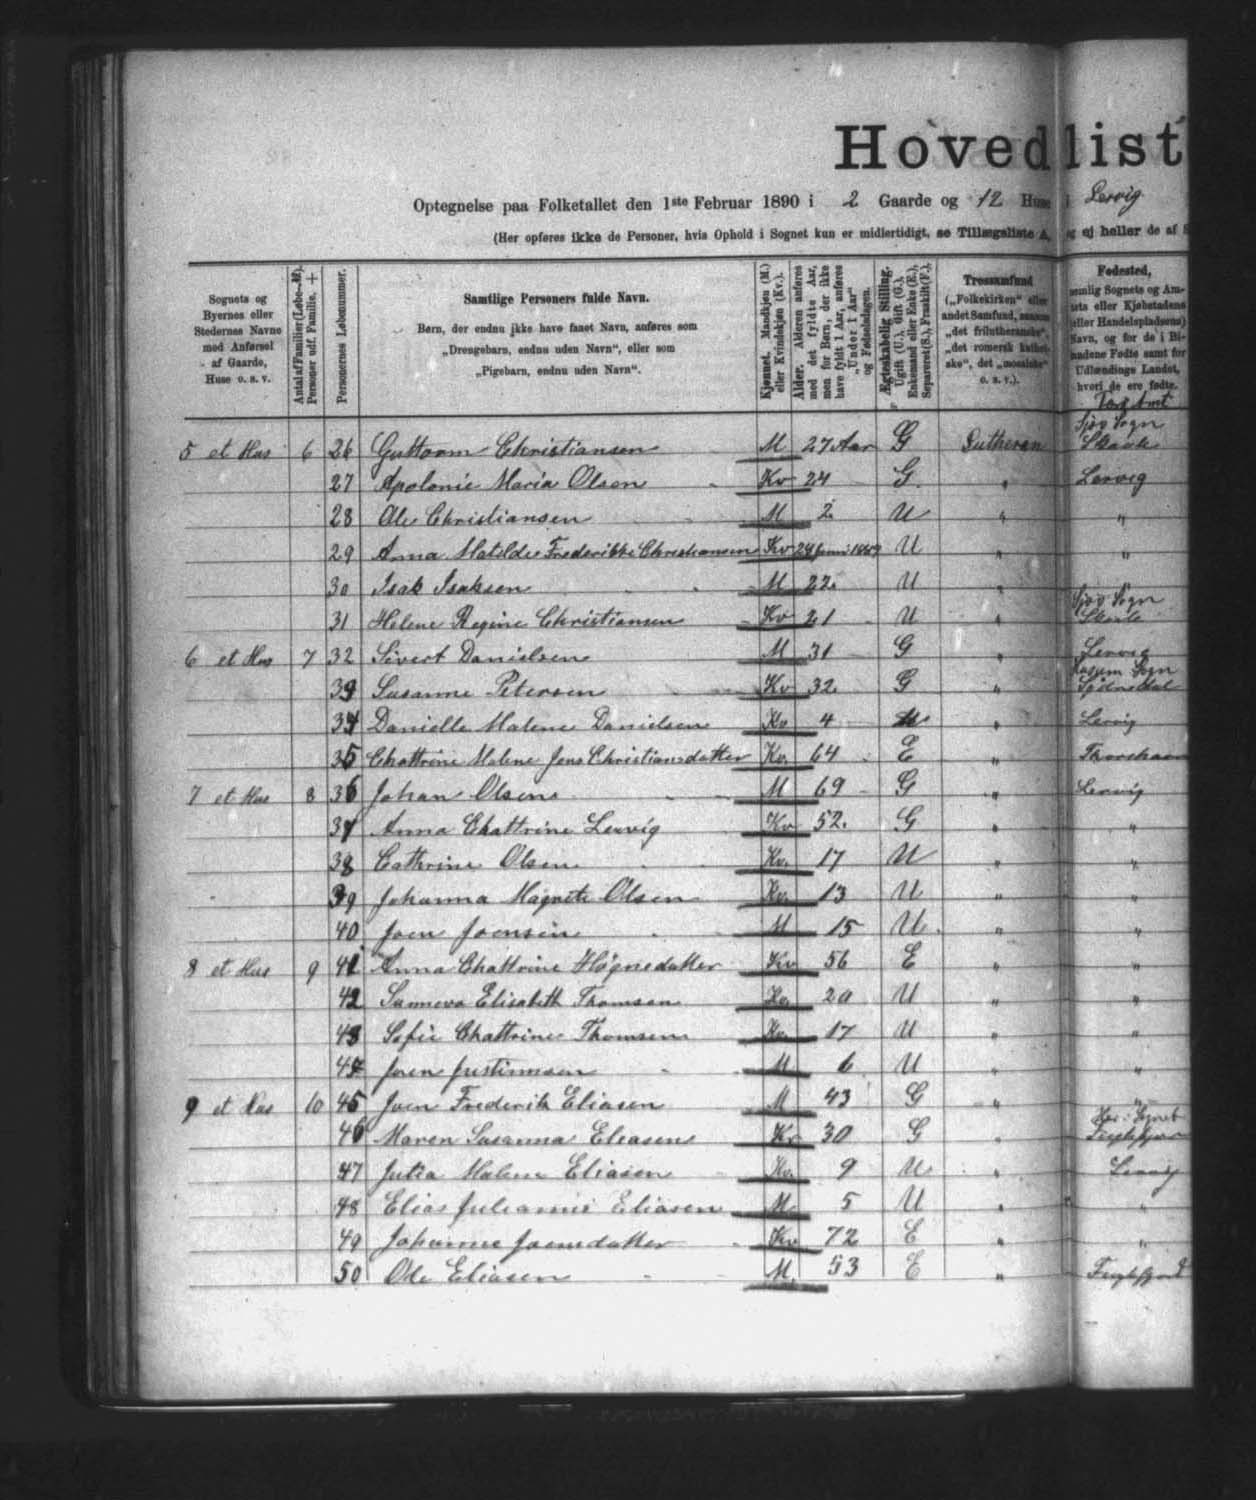 Hovedlist
Optegnelse paa Folketallet den 1ste Februar 1890 i 2 Gaarde og 12 Huse i Lervig
(Her opføres ikke de Personer, hvis Ophold i Sognet kun er midlertidigt, se Tillægsliste A, og ej heller de af
Sognets og Byernes eller Stedernes Navne med Anførsel af Gaarde, Huse o. s. v.
Antal af Familier (Løbe-№). Personer udf. Familie. +
Personernes Løbenummer.
Samtlige Personers fulde Navn.
Børn, der endnu ikke have faaet Navn, anføres som
„Drengebarn, endnu uden Navn“, eller som
„Pigebarn, endnu uden Navn“.
Kjønnet. Mandkjøn (M.) eller Kvindekjøn (Kv.).
Alder. Alderen anføres med det fyldte Aar, men for Børn, der ikke have fyldt 1 Aar, anføres „Under 1 Aar“ og Fødselsdagen.
Ægteskabelig Stilling. Ugift (U.), Gift (G.), Enkemand eller Enke (E.), Separeret (S.), Fraskilt (F.).
Trossamfund
(„Folkekirken“ eller
andet Samfund, saasom
„det frilutheranske“,
„det romersk katholske“, det „mosaiske“
o. s. v.).
Fødested,
nemlig Sognets og Amtets eller Kjøbstadens
(eller Handelspladsens)
Navn, og for de i Bilandene Fødte samt for
Udlændinge Landet,
hvori de ere fødte.
5 et Hus 6 26 Guttorm Christiansen M 27 Aar G Lutheran Sjov Sogn
27 Apolonie Maria Olsen Kv 24 G. " Lervig
28 Ole Christiansen M 2 U " "
29 Anna Matilde Frederikke Christiansen Kv 24 Juni 1889 U " "
30 Isak Isaksen M 22 U "
31 Helene Regine Christiansen Kv 21 U " Sjov Sogn
6 et Hus 7 32 Sivert Danielsen M 31 G " Lervig
33 Susanne Petersen Kv 32 G " Sogn
34 Danielle Malene Danielsen Kv 4 U " Lervig
35 Chattrine Malene Jens Christiansdatter Kv. 64 E " Thorshavn
7 et Hus 8 36 Johan Olsen M 69 G " Lervig
37 Anna Chattrine Lervig Kv 52. G " "
38 Cathrine Olsen Kv. 17 U " "
39 Johanna Magrete Olsen Kv. 13 U " "
40 Joen Joensen M 15 U. " "
8 et Hus 9 41 Anna Chattrine Høgnedatter Kv 56 E " "
42 Sunneva Elisabeth Thomsen Kv 20 U " "
43 Sofie Chattrine Thomsen Kv. 17 U " "
44 Joen Justinusen M 6 U " "
9 et Hus 10 45 Joen Frederik Eliasen M 43 G " "
46 Maren Susanna Eliasen Kv 30 G " Fuglefjord
47 Jutta Malene Eliasen Kv. 9 U " Lervig
48 Elias Julianus Eliasen M. 5 U " "
49 Johanne Joensdatter Kv 72 E " "
50 Ole Eliasen M 53 E " Fuglefjord